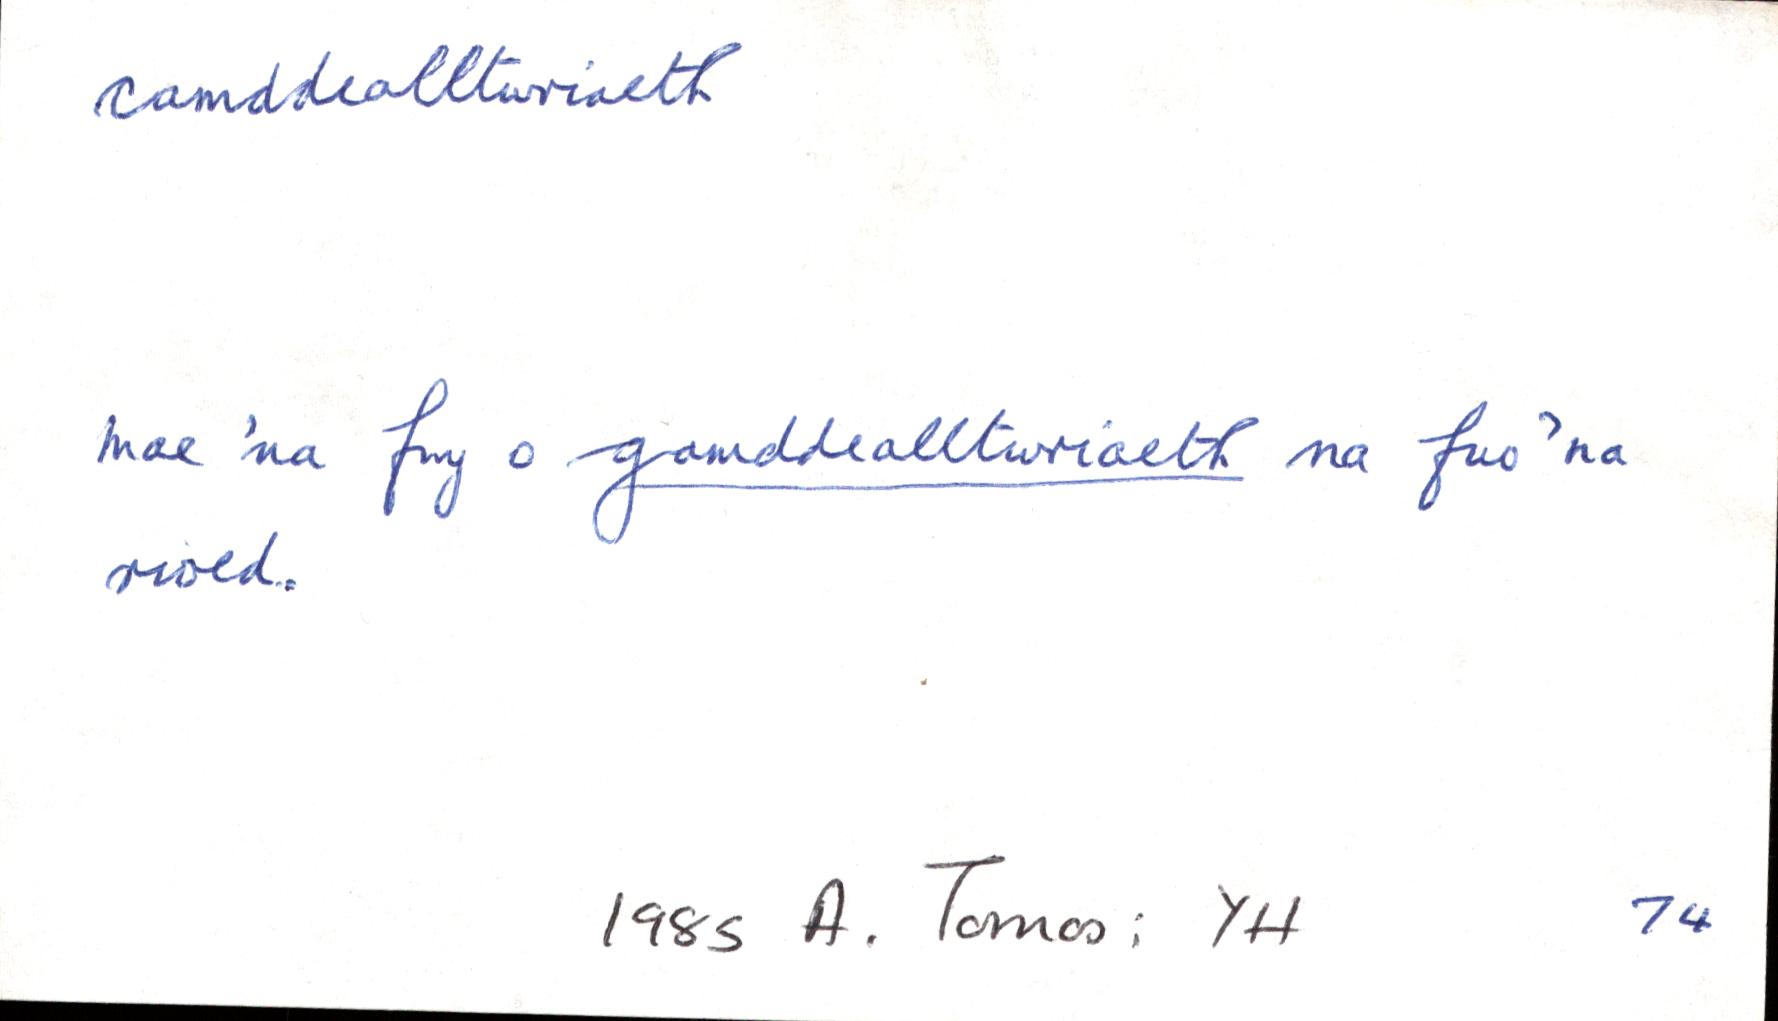 camddealltwriaeth
Mae 'na fwy o gamddealltwriaeth na fuo 'na
rioed.
1985 A. Tomos: YH 74